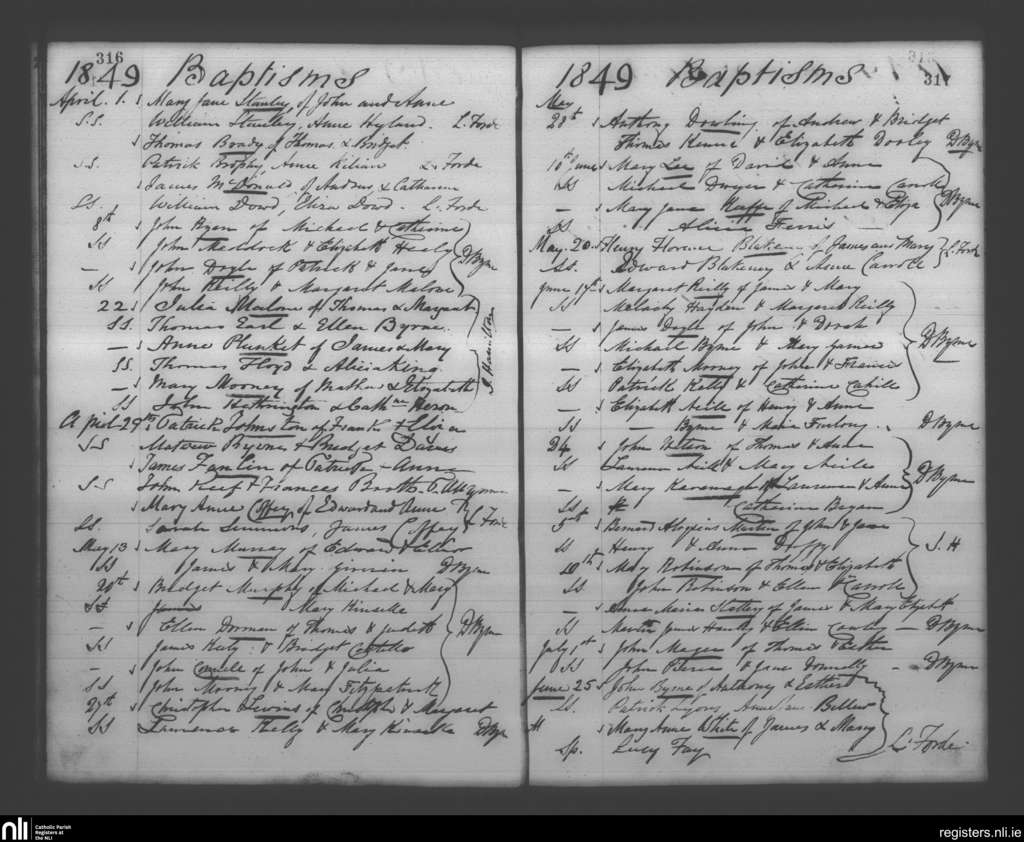 316
1849 Baptisms
April. 1. s Mary Jane Stanley of John and Anne
S.S. William Stanley, Anne Hyland. L. Forde
s Thomas Brady of Thomas & Bridget
S.S. Patrick Brophy, Anne L. Forde
s James McDonald of Andrew & Catharine
S.S. William Dowd, Eliza Dowd. L. Forde
8th s John Byrne of Michael & Catherine
SS John & Elizabeth Healy
— s John Doyle of Patrick & Jane D Byrne
SS John Reilly & Margaret Malone
22 s Julia Malone of Thomas & Margaret
SS. Thomas East & Ellen Byrne.
— s Anne Plunket of James & Mary
SS. Thomas Floyd & Alicia King J. Hamilton
— s Mary Mooney of Mathew & Elizabeth
SS John & Cathne
April 29th s Patrick Johnston of Frank & Eliza
SS Mathew Byrne & Bridget Davis
s James of Patrick & Anne
S.S John Keef & Frances
s Mary Anne Coffey of Edward and Anne
SS. Sarah Simmons, James Coffey L Forde
May 13 s Mary Murray of Edward & Ellen
SS James & Mary D Byrne
20th s Bridget Murphy of Michael & Mary
SS James Mary Kinsella
— s Ellen Dorman of Thomas & Judith D Byrne
SS James & Bridget Costello
— s John of John & Julia
SS John Mooney & Mary Fitzpatrick
27th s Christopher of Christopher & Margaret
SS Lawrence Kelly & Mary D Byrne
317
1849 Baptisms
May
28th s Anthony Dowling of Andrew & Bridget
Thomas & Elizabeth Dooley D Byrne
10th June s Mary Lee of David & Anne
SS Michael Dwyer & Catherine Carroll
— s Mary Jane of Richard & Eliza D Byrne
SS Alicia Ferris —
May. 20 s Henry Florence Blakeney of James and Mary L. Forde
SS. Edward Blakeney & Anne Carroll
June 17th s Margaret Reilly of James & Mary
SS Malachy Hayden & Margaret Reilly
— s James Doyle of John & Dorah
SS Michael Byrne & Mary D Byrne
— s Elizabeth Mooney of John & Frances
SS Patrick Kelly & Catherine Cahill
— s Elizabeth Neill of Henry & Anne
SS — Byrne & Maria Furlong .. D Byrne
24 s John of Thomas & Anne
SS Laurence Neill & Mary Neill
— s Mary Kavanagh of Laurence & Anne D Byrne
SS Catherine
s Bernard Aloysius Martin of John & Jane
SS Henry & Anne J. H
10th s May Robinson of Thomas & Elizabeth
SS John Robinson & Ellen Carroll
— s Anna Maria Slattery of James & Mary Elizabeth
SS Martin James & Ellen — D Byrne
July 1st s John of Thomas &
SS John Pierce & Jane Donnelly — D Byrne
June 25 s John Byrne of Anthony & Esther
SS. Patrick Lyons, Anne Bellew
s Mary Anne White of James & Mary
Sp. Lucy Fay L. Forde.
nli
Catholic Parish
Registers at
the NLI
registers.nli.ie